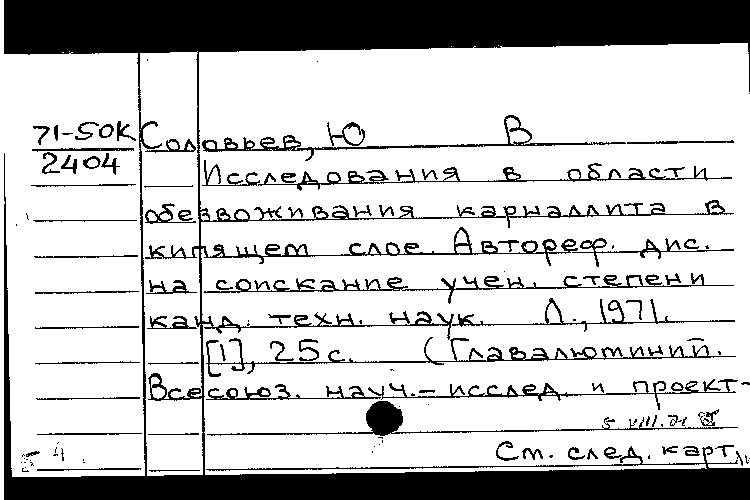 71-5ОК Соловьев, Ю В
2404
Исследования в области
обезвоживания карналлита в
кипящем слое. Автореф. дис.
на соискание учен. степени
канд. техн. наук. Л., 1971.
[1], 25с. (Главалютиний.
Всесоюз. науч.-исслед. и проект-
5 VIII.71
См. след. карт.
54